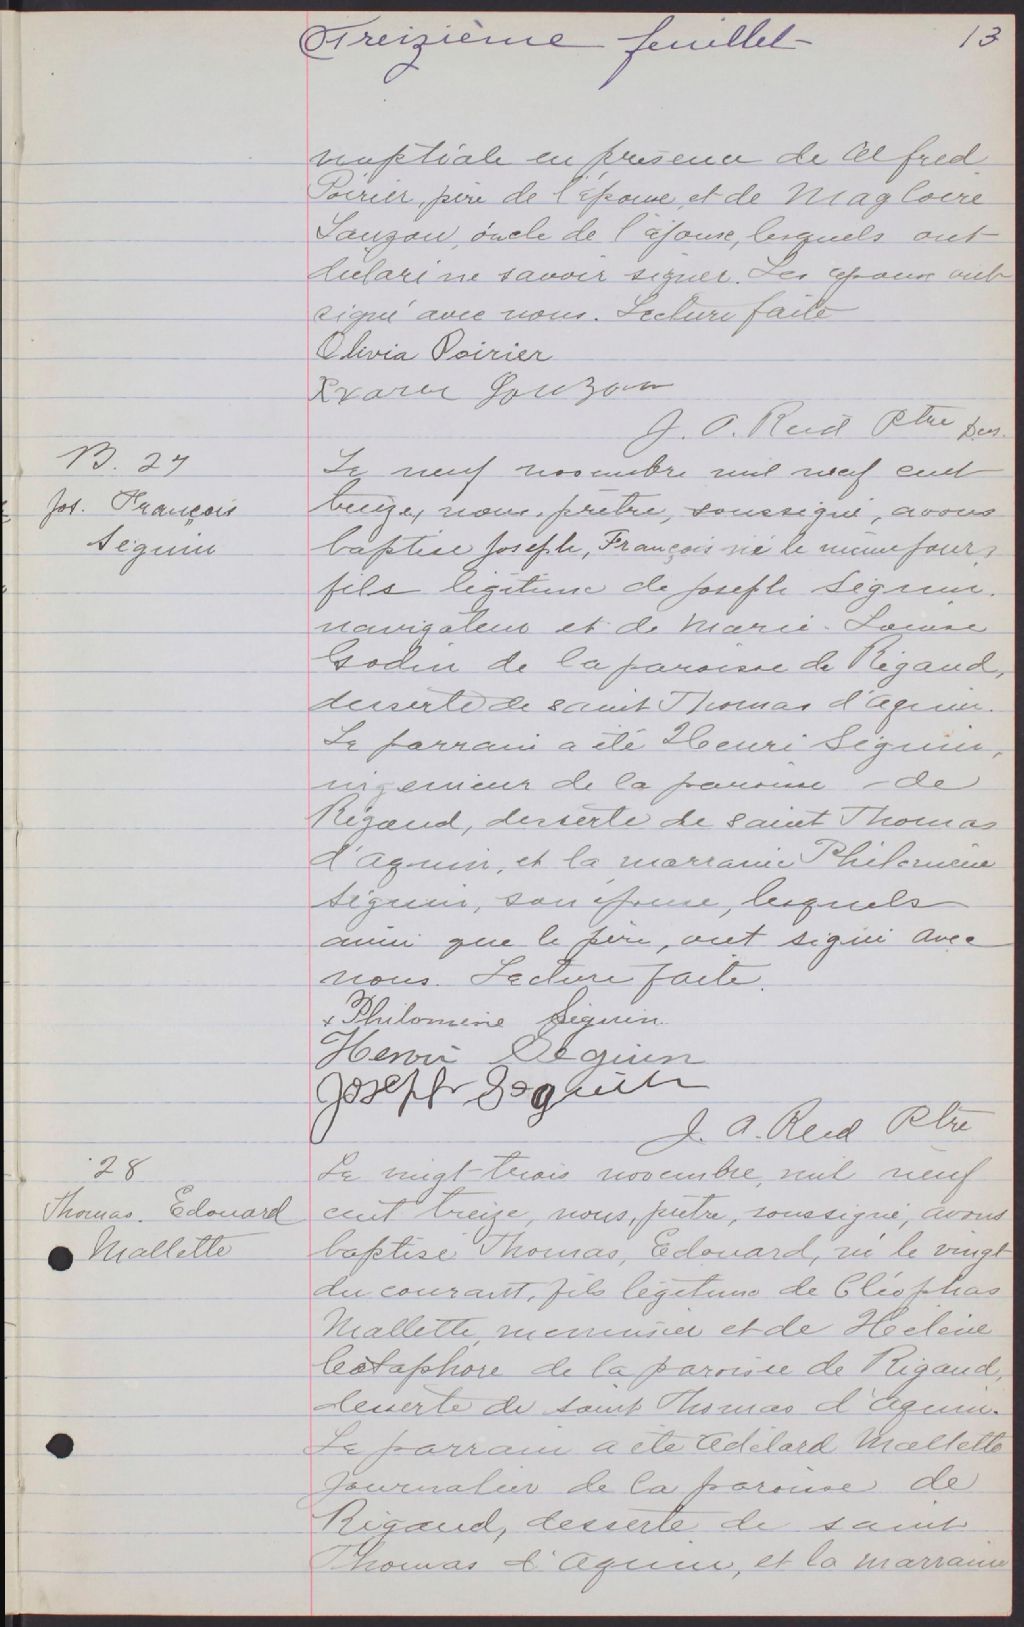 Treizième feuillet
13
nuptiale en présence de Alfred
Poirier, père de l'épouse, et de Magloire
Lauzon, oncle de l'épouse, lesquels ont
déclaré ne savoir signer. Les époux ont
signé avec nous. Lecture faite
Olivia Poirier
Lauzon
J. A. Reid Ptre Des.
B. 27
Jos. François
Séguin
Le neuf novembre mil neuf cent
treize, nous, prêtre, soussigné, avons
baptisé Joseph, François né le même jour,
fils légitime de Joseph Séguin,
navigateur et de Marie-Louise
Godin de la paroisse de Rigaud,
desserte de saint Thomas d'Aquin.
Le parrain a été Henri Séguin,
ingenieur de la paroisse - de
Rigaud, desserte de saint Thomas
d'Aquin, et la marraine Philomène
Séguin, son épouse, lesquels
ainsi que le père, ont signé avec
nous. Lecture faite.
x Philomène Séguin
Henri Séguin
Joseph Seguin
J. A. Reid Ptre
28
Thomas. Edouard
Mallette
Le vingt trois novembre, mil neuf
cent treize, nous, prêtre, soussigné, avons
baptisé Thomas, Edouard, né le vingt
du courant, fils légitime de Cléophas
Mallette, menuisier et de Hélène
Castaphore de la paroisse de Rigaud,
desserte de saint Thomas d'Aquin.
Le parrain a été Adélard Mallette
journalier de la paroisse de
Rigaud, desserte de saint
Thomas d'Aquin, et la marraine